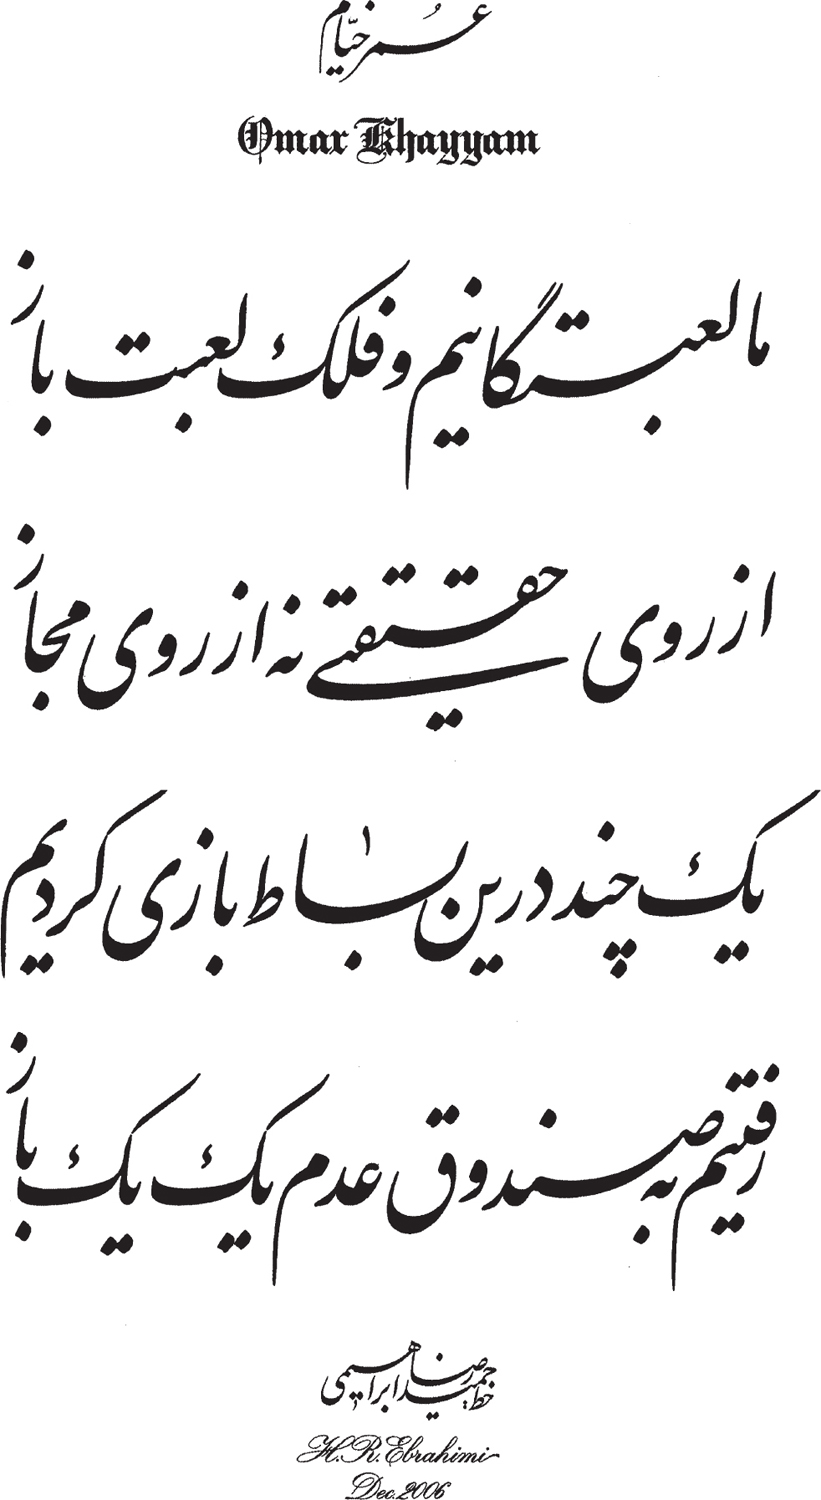 عُمر خیّام
Omar Khayyam
ما لعبتگانیم و فلک لعبت باز
از روی حقیقتی نه از روی مجاز
یک چند درین بساط بازی کردیم
رفتیم به صندوق عدم یک یک باز
خط حمیدرضا ابراهیمی
H. R. Ebrahimi
Dec. 2006